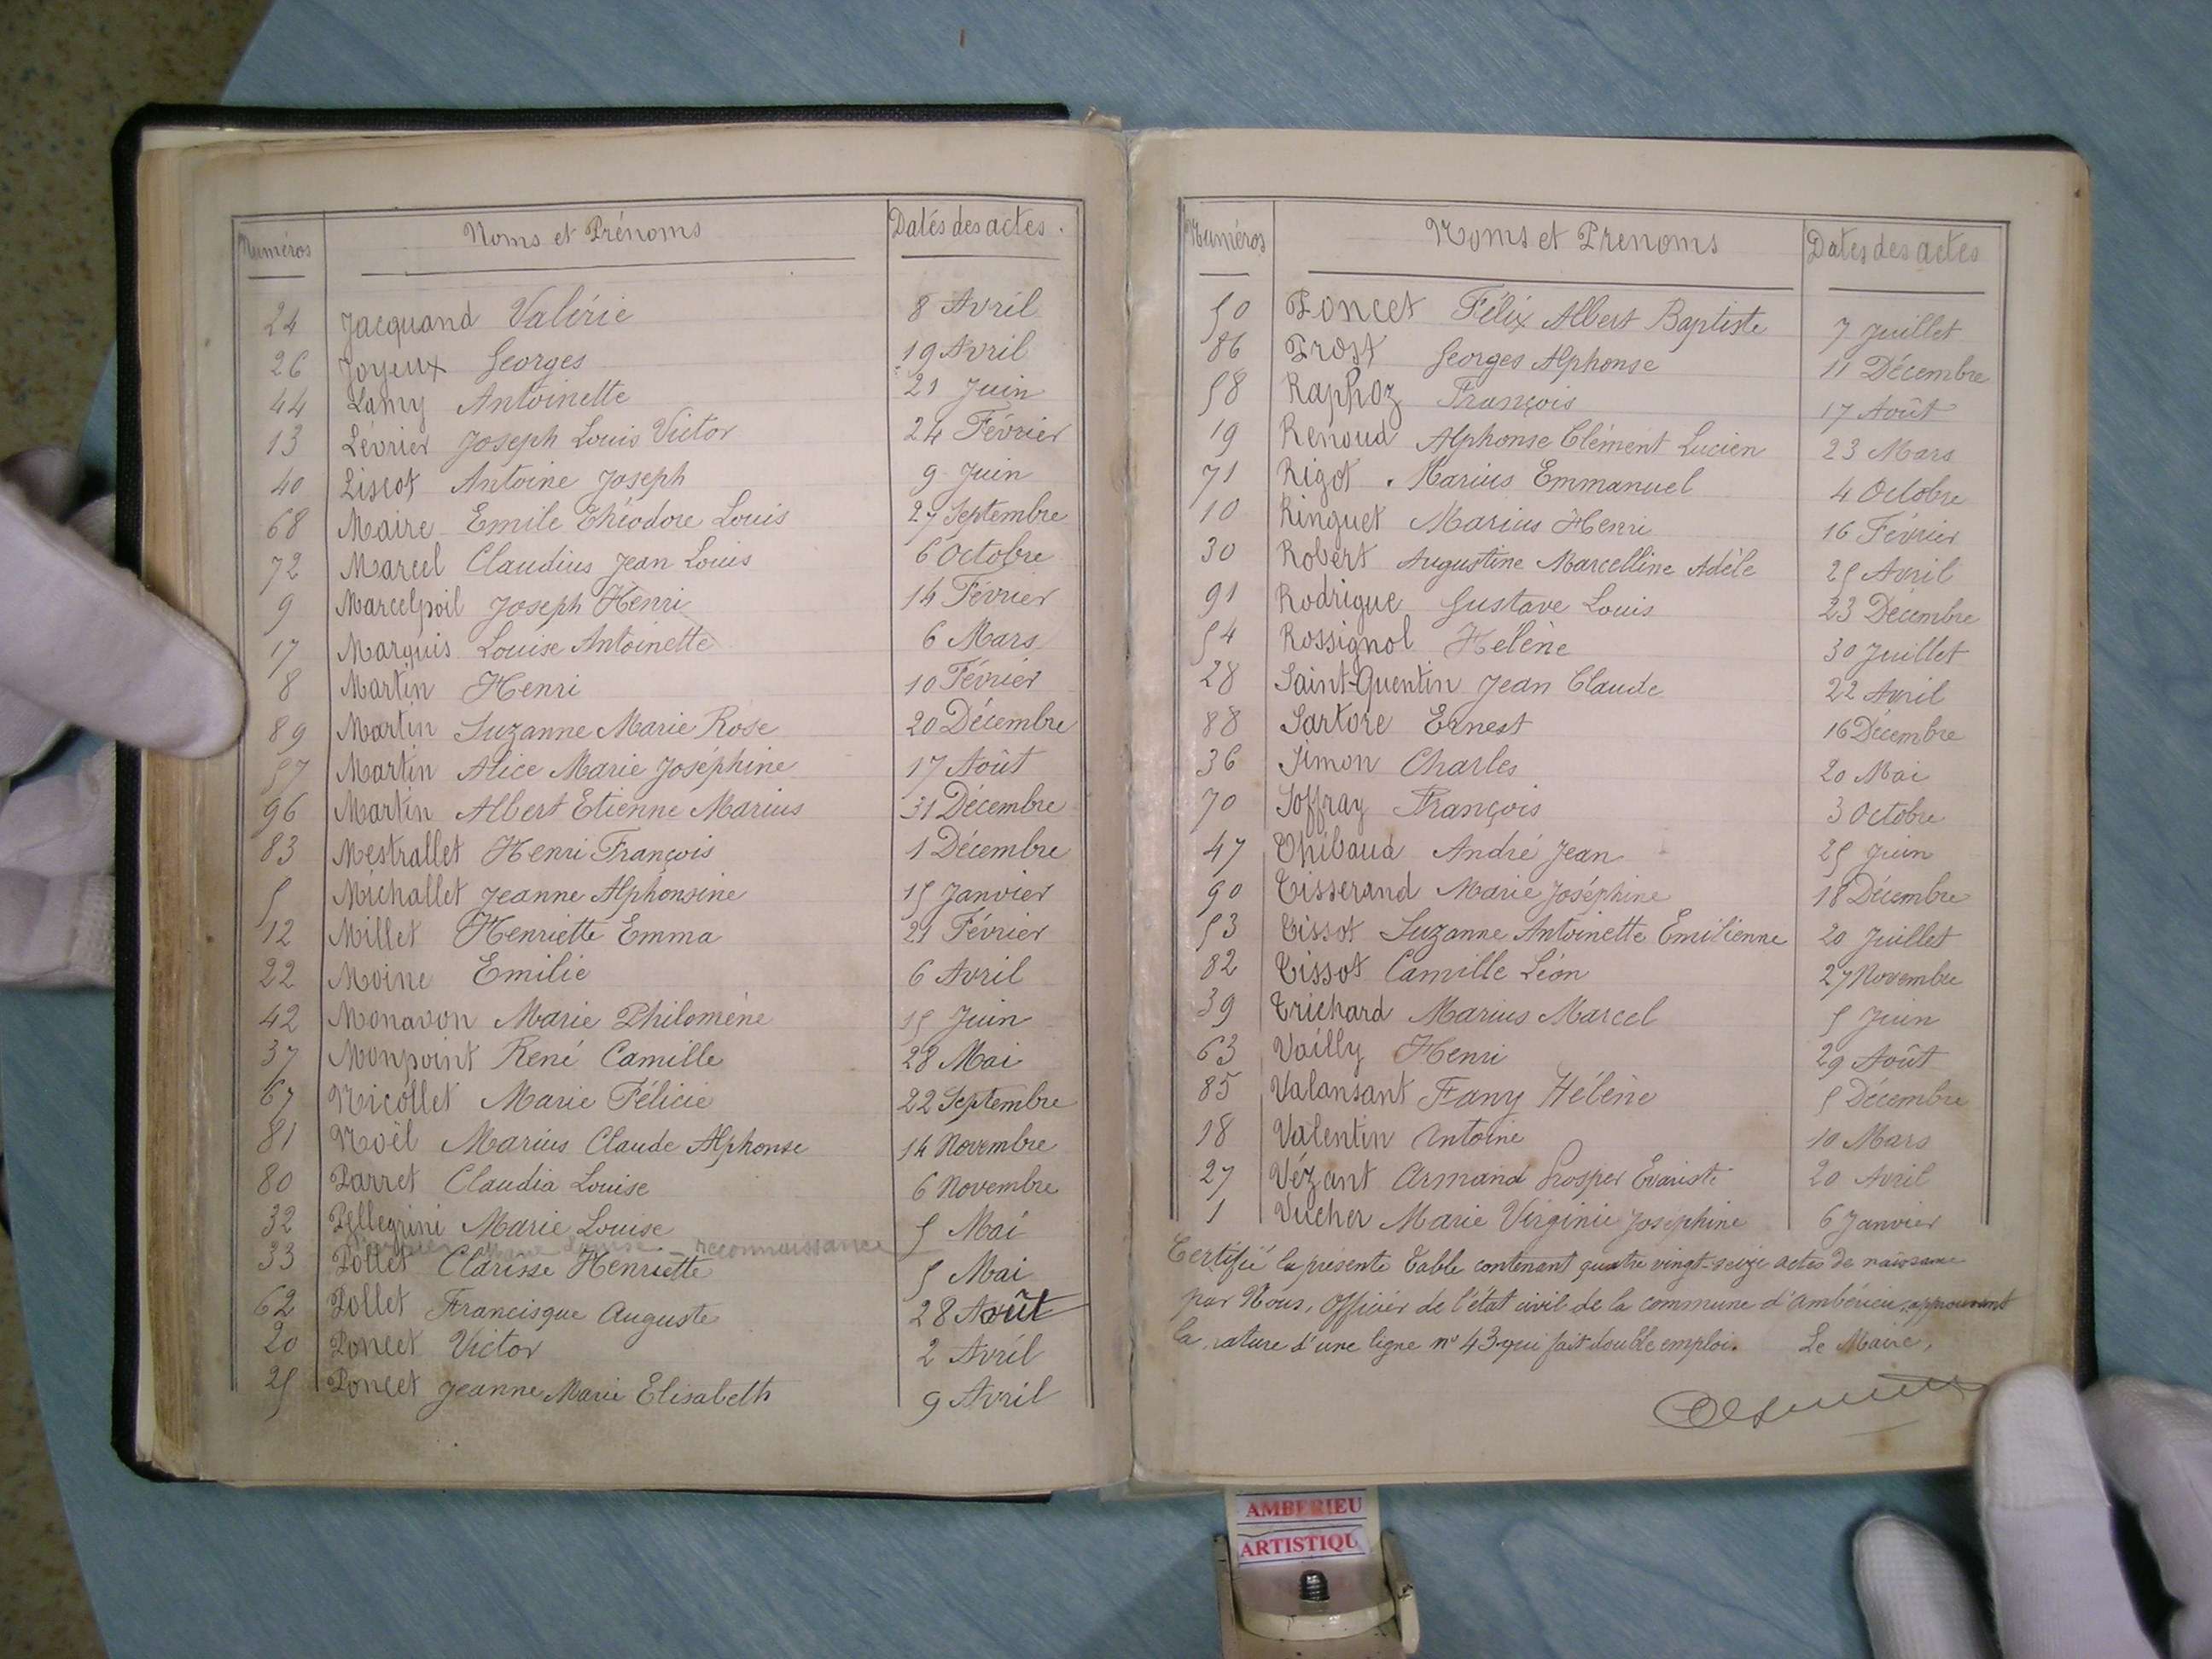 Numéros Noms et Prénoms Datés des actes.
24 Jacquand Valérie 8 Avril
26 Joyeux Georges 19 Avril
44 Lamy Antoinette 21 Juin
13 Lévrier Joseph Louis Victor 24 Février
40 Liscot Antoine Joseph 9 Juin
68 Maire Emile Théodore Louis 27 Septembre
72 Marcel Claudius Jean Louis 6 Octobre
9 Marcelpoil Joseph Henri 14 Février
17 Marquis Louise Antoinette 6 Mars
8 Martin Henri 10 Février
89 Martin Suzanne Marie Rose 20 Décembre
57 Martin Alice Marie Joséphine 17 Août
96 Martin Albert Etienne Marius 31 Décembre
83 Mestrallet Henri François 1 Décembre
5 Michallet Jeanne Alphonsine 15 Janvier
12 Millet Henriette Emma 21 Février
22 Moine Emilie 6 Avril
42 Monavon Marie Philomène 15 Juin
37 Monpoint René Camille 28 Mai
67 Nicollet Marie Félicie 22 Septembre
81 Noël Marius Claude Alphonse 14 Novembre
80 Parret Claudia Louise 6 Novembre
32 Pellegrini Marie Louise 5 Mai
Marie Louise reconnaissance
33 Pollet Clarisse Henriette 5 Mai
62 Pollet Francisque Auguste 28 Août
20 Poncet Victor 2 Avril
25 Poncet Jeanne Marie Elisabeth 9 Avril
Numéros Noms et Prenoms Dates des actes
50 Poncet Félix Albert Baptiste 7 Juillet
86 Prost Georges Alphonse 11 Décembre
58 Raphoz François 17 Août
19 Renoud Alphonse Clément Lucien 23 Mars
71 Rigot Marius Emmanuel 4 Octobre
10 Ringuet Marius Henri 16 Février
30 Robert Augustine Marcelline Adèle 25 Avril
91 Rodrigue Gustave Louis 23 Décembre
54 Rossignol Hélène 30 Juillet
28 Saint-Quentin Jean Claude 22 Avril
88 Sartore Ernest 16 Décembre
36 Simon Charles 20 Mai
70 Soffray François 3 Octobre
47 Thibaud André Jean 25 Juin
90 Tisserand Marie Joséphine 18 Décembre
53 Tissot Suzanne Antoinette Emilienne 20 Juillet
82 Tissot Camille Léon 27 Novembre
39 Trichard Marius Marcel 5 Juin
63 Vailly Henri 29 Août
85 Valansant Fany Hélène 5 Décembre
18 Valentin Antoine 10 Mars
27 Vézant Armand Prosper Evariste 20 Avril
1 Vucher Marie Virginie Joséphine 6 Janvier
Certifié la présente Table contenant quatre vingt-seize actes de naissance
par Nous, Officier de l'état civil de la commune d'Ambérieu, approuvant
la rature d'une ligne n° 43 qui fait double emploi. Le Maire,
AMBERIEU
ARTISTIQU